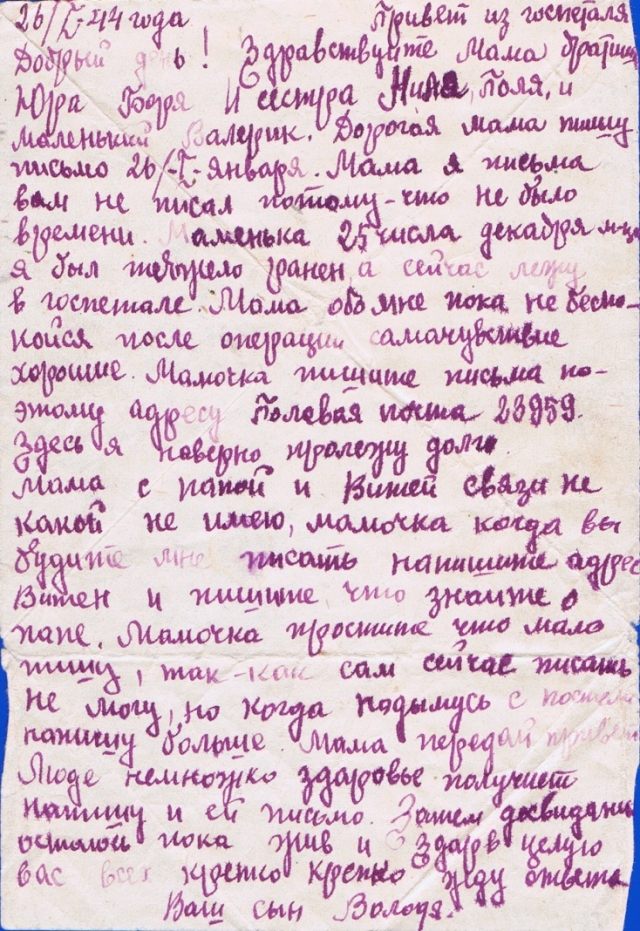 26/I-44 года Привет из госпеталя
Добрый день! Здравствуйте Мама братиш
Юра Боря и сестра Нина, Поля, и
маленький Валерик. Дорогая мама пишу
письмо 26/-I-января. Мама я письма
вам не писал потому-что не было
времени. Маменька 25 числа декабря м-ца
я был тежжело ранен а сейчас лежу
в госпетале. Мама обо мне пока не беспо-
койся после операции самачувствие
хорошие. Мамочка пишите письма по-
этому адресу Полевая почта 28959.
Здесь я наверно пролежу долго
Мама с папой и Витей связи не
какой не имею, мамочка когда вы
будите мне писать напишите адрес
Витен и пишите что знаите о
папе. Мамочка простите что мало
пишу, так-как сам сейчас писать
не могу, но когда подымусь с постели
напишу больше Мама передай привет
Люде немножко здаровье получшет
напишу и ей письмо. Затем досвидани
остаюсь пока жив и здарв целую
вас всех крепко крепко жду ответа
Ваш сын Володя.